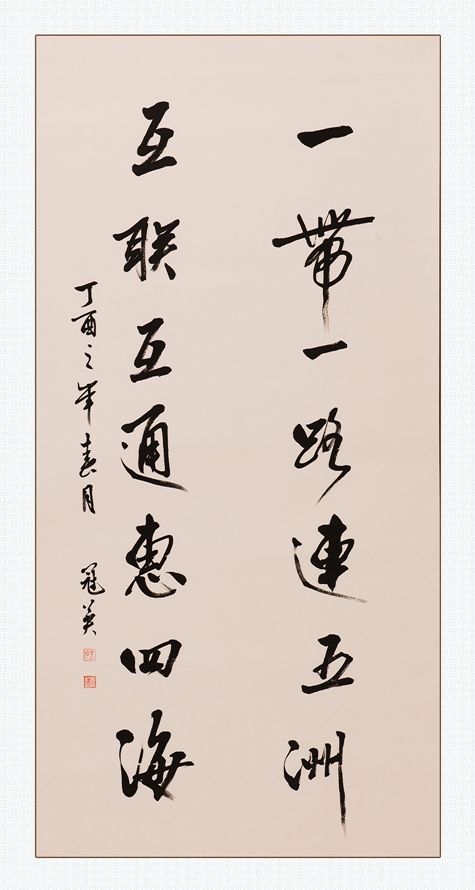 一帶一路連五洲
互联互通惠四海
丁酉之年春月 冠英